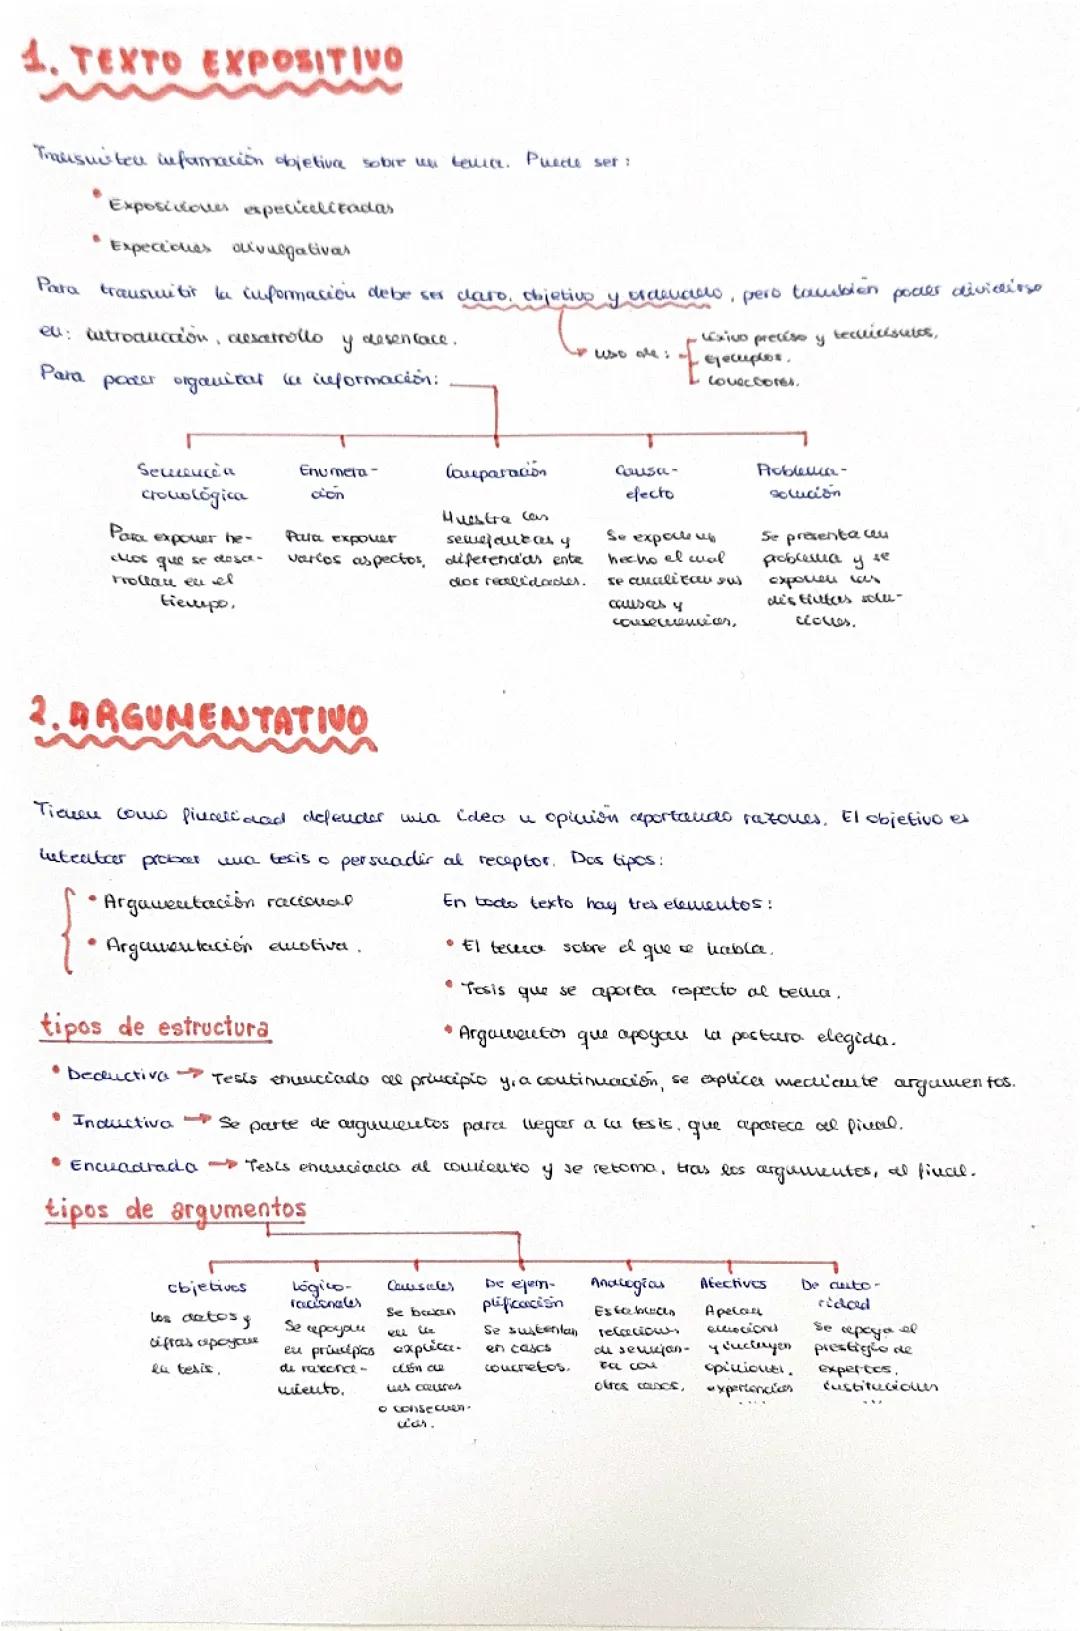 1. TEXTO EXPOSITIVO
Transmiten información objetiva sobre un tema. Puede ser:
• Exposiciones especializadas
• Expeciones divulgativas
Para transmitir la información debe ser claro, objetivo y ordenado, pero también poder dividirse
en: introducción, desarrollo y desenlace.
uso de: léxico preciso y tecnicismos,
ejemplos,
conectores.
Para poder organizar la información:
Secuencia
cronológica
Para exponer he-
chos que se desa-
rrollan en el
tiempo.
Enumera-
ción
Para exponer
varios aspectos,
Comparación
Muestra las
semejanzas y
diferencias ente
dos realidades.
Causa-
efecto
Se expone un
hecho el cual
se analizan sus
causas y
consecuencias,
Problema-
solución
Se presenta un
problema y se
exponen las
distintas solu-
ciones.
2. ARGUMENTATIVO
Tienen como finalidad defender una idea u opinión aportando razones. El objetivo es
intentar probar una tesis o persuadir al receptor. Dos tipos:
• Argumentación racional
• Argumentación emotiva.
En todo texto hay tres elementos:
• El tema sobre el que se habla.
• Tesis que se aporta respecto al tema.
• Argumentos que apoyan la postura elegida.
tipos de estructura
• Deductiva → Tesis enunciada al principio y, a continuación, se explica mediante argumentos.
• Inductiva → Se parte de argumentos para llegar a la tesis, que aparece al final.
• Encuadrada → Tesis enunciada al comienzo y se retoma, tras los argumentos, al final.
tipos de argumentos
objetivos
los datos y
cifras apoyan
la tesis.
Lógico-
racionales
Se apoyan
en principios
de razona-
miento.
Causales
Se basan
en la
explica-
ción de
las causas
o consecuen-
cias.
De ejem-
plificación
Se sustentan
en casos
concretos.
Analogías
Establecen
relaciones
de semejan-
za con
otros casos.
Afectivos
Apelan
emociones
y incluyen
opiniones,
experiencias
...
De auto-
ridad
Se apoya el
prestigio de
expertos,
instituciones
...